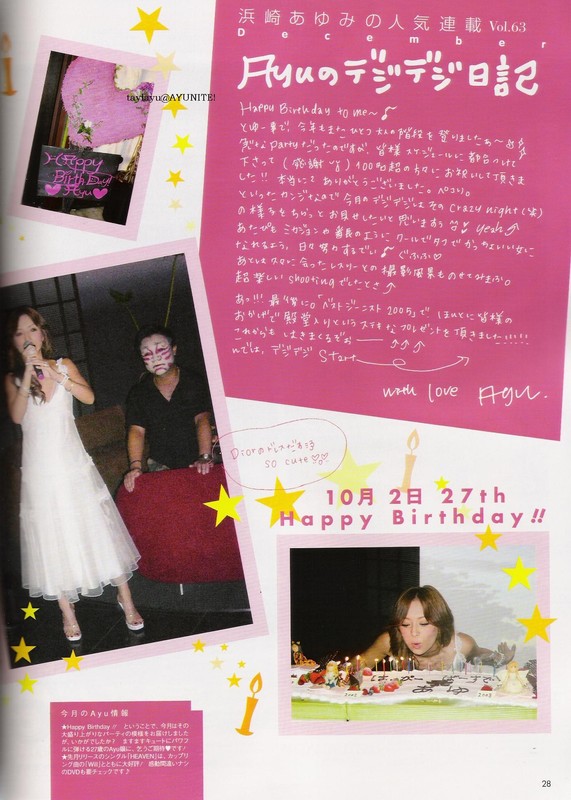 浜崎あゆみの人気連載 Vol.63
December
Ayuのデジデジ日記
taylayu@AYUNITE!
HAPPY
BirthDay!!
Ayu
Happy Birthday to me~♪
とゆー事で、今年もまたひとつ大人の階段を登りましたぁ〜
急なpartyだったのですが、皆様スケジュールに都合つけて
下さって(感謝)100名超の方々にお祝いして頂きま
した!!本当にありがとうございました。ペコリ。
といったカンジなので今月のデジデジはその Crazy night(笑)
の様子をちょっとお見せしたいと思いますっ Yeah
なれるよう、日々努力するでい♪ぐふふ♡
超楽しいshootingでしたとさ
あっ!!!最後に。「ベストジーニスト2005」で、ほんとに皆様の
おかげで殿堂入りというステキなプレゼントを頂きました!!!!!
これからもはきまくるぞぉー
んでは、デジデジ Start
with love Ayu.
Diorのドレスだよ
so cute♡
10月2日 27th
Happy Birthday!!
2005
今月のAyu情報
★Happy Birthday♪ ということで、今月はその
大盛り上がりなパーティの模様をお届けしました
が、いかがでしたか? ますますキュートにパワフ
ルに弾ける27歳のAyu嬢に、乞うご期待♥です!
★先月リリースのシングル「HEAVEN」は、カップリ
ング曲の「Will」とともに大好評! 感動間違いナシ
のDVDも要チェックです♪
28